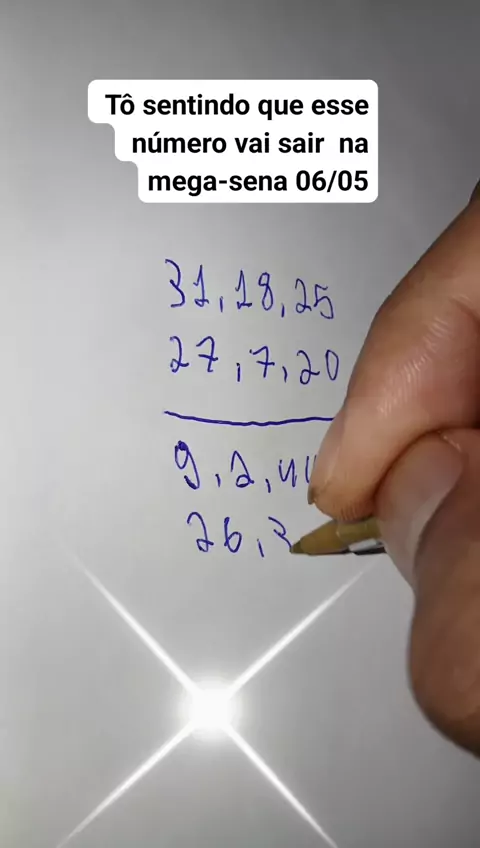 Tô sentindo que esse
número vai sair na
mega-sena 06/05
31, 18, 25
27, 7, 20
9, 2, 44
26, 3